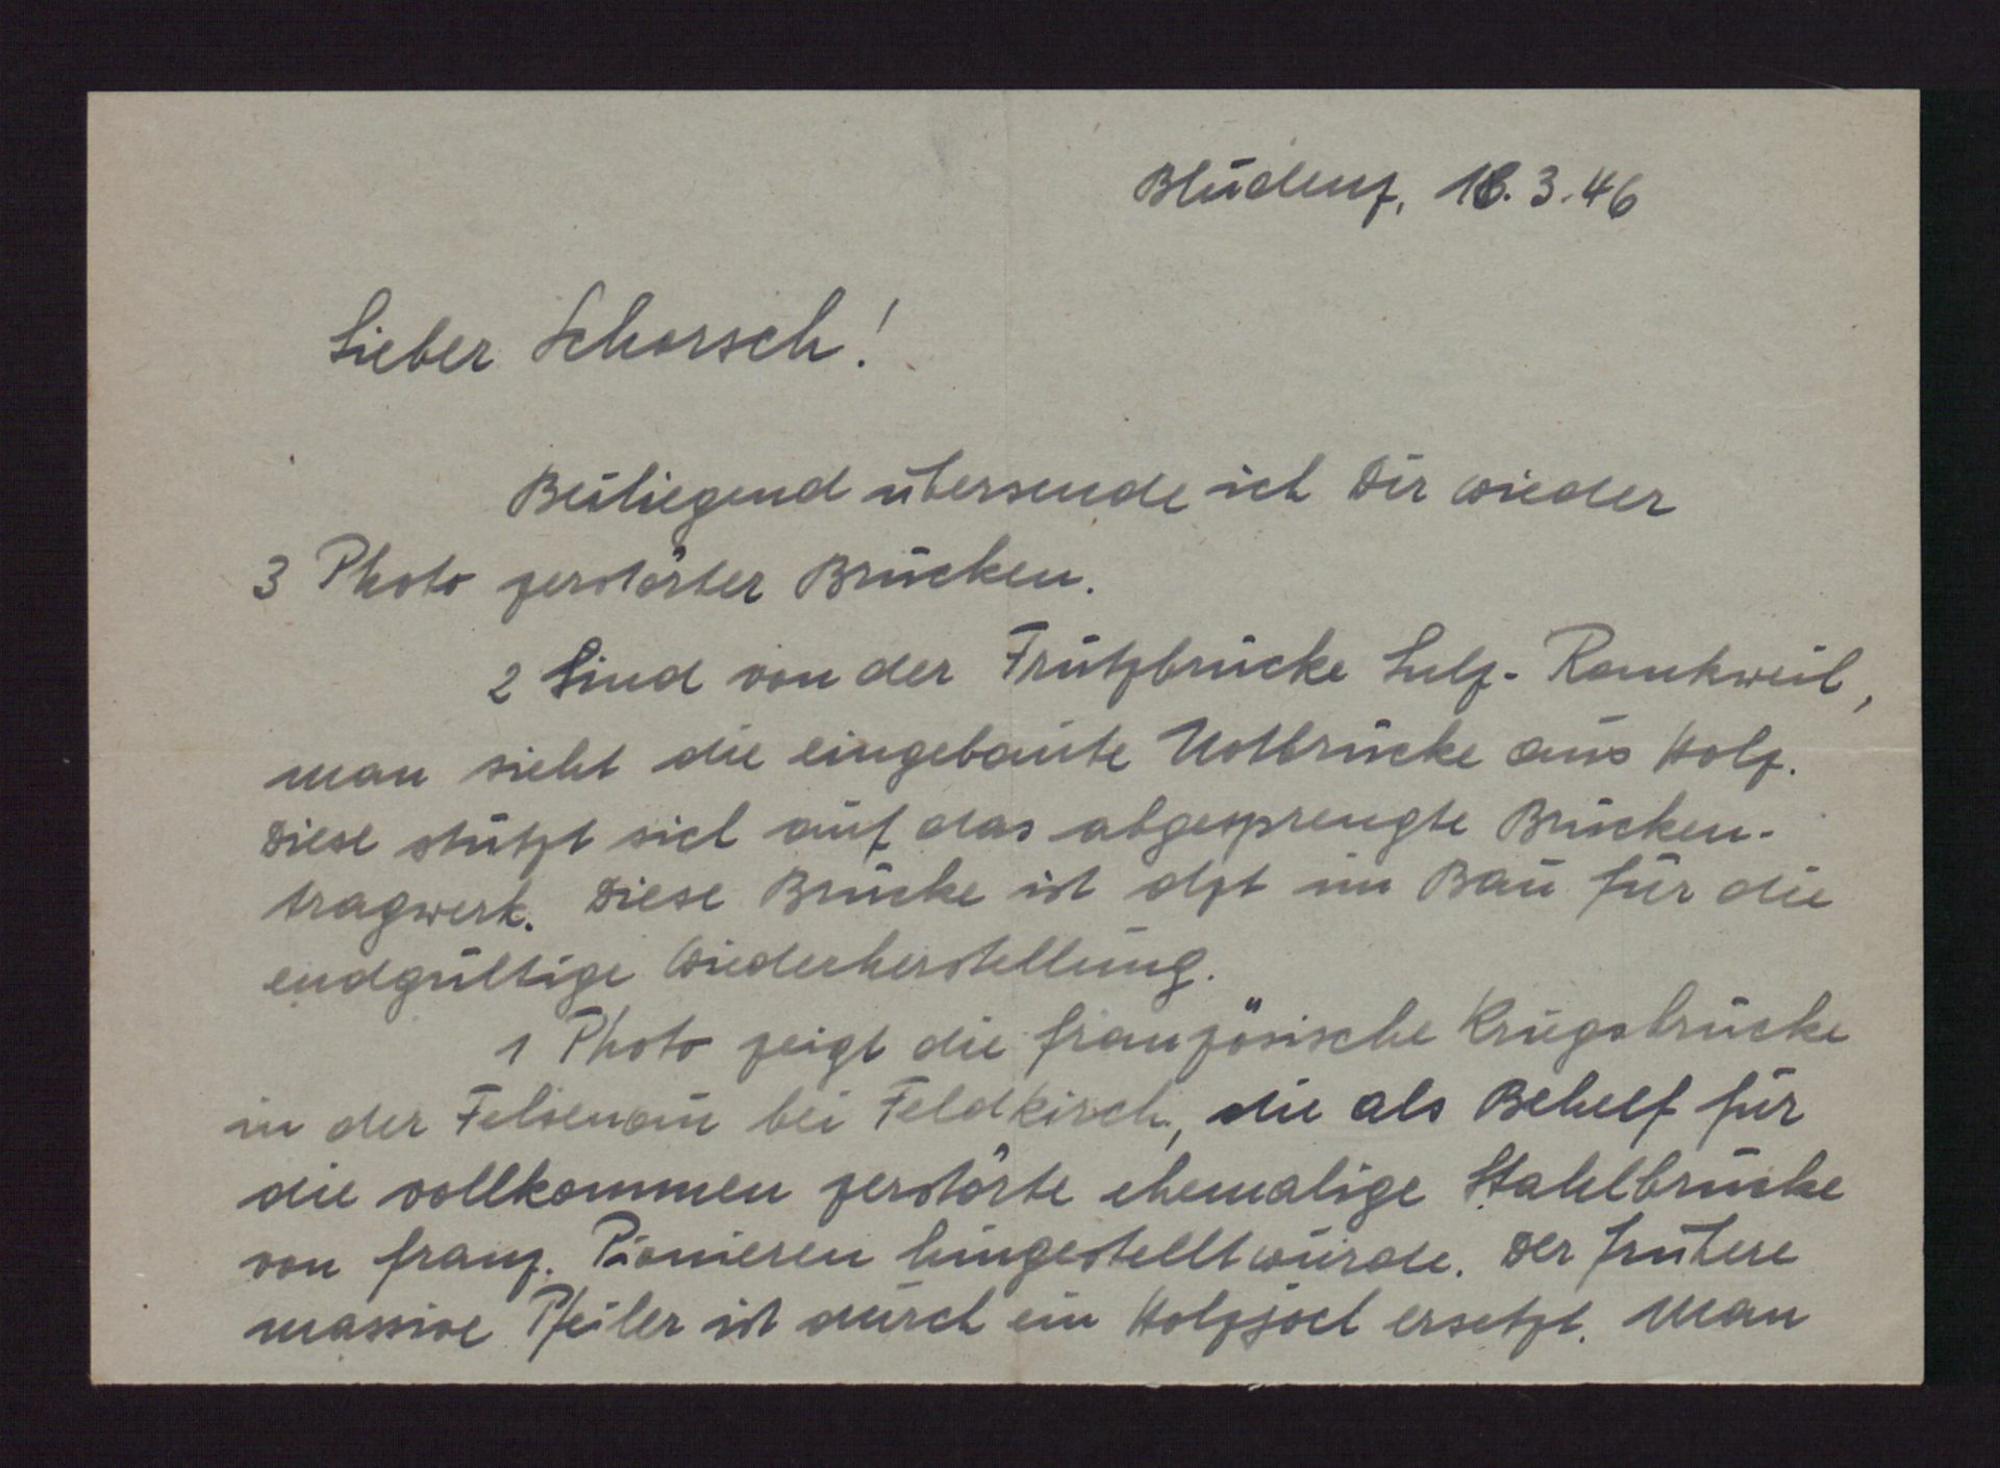 Bludenz, 18.3.46
Lieber Schorsch!
Beiliegend übersende ich Dir wieder
3 Photo zerstörter Brücken.
2 Sind von der Frutzbrücke Sulz-Rankweil,
man sieht die eingebaute Notbrücke aus Holz.
Diese stützt sich auf das abgesprengte Brücken-
tragwerk. Diese Brücke ist dzt im Bau für die
endgültige Wiederherstellung.
1 Photo zeigt die französische Kriegsbrücke
in der Felsenau bei Feldkirch, die als Behelf für
die vollkommen zerstörte ehemalige Stahlbrücke
von franz. Pionieren hingestellt wurde. Der frühere
massive Pfeiler ist durch ein Holzjoch ersetzt. Man